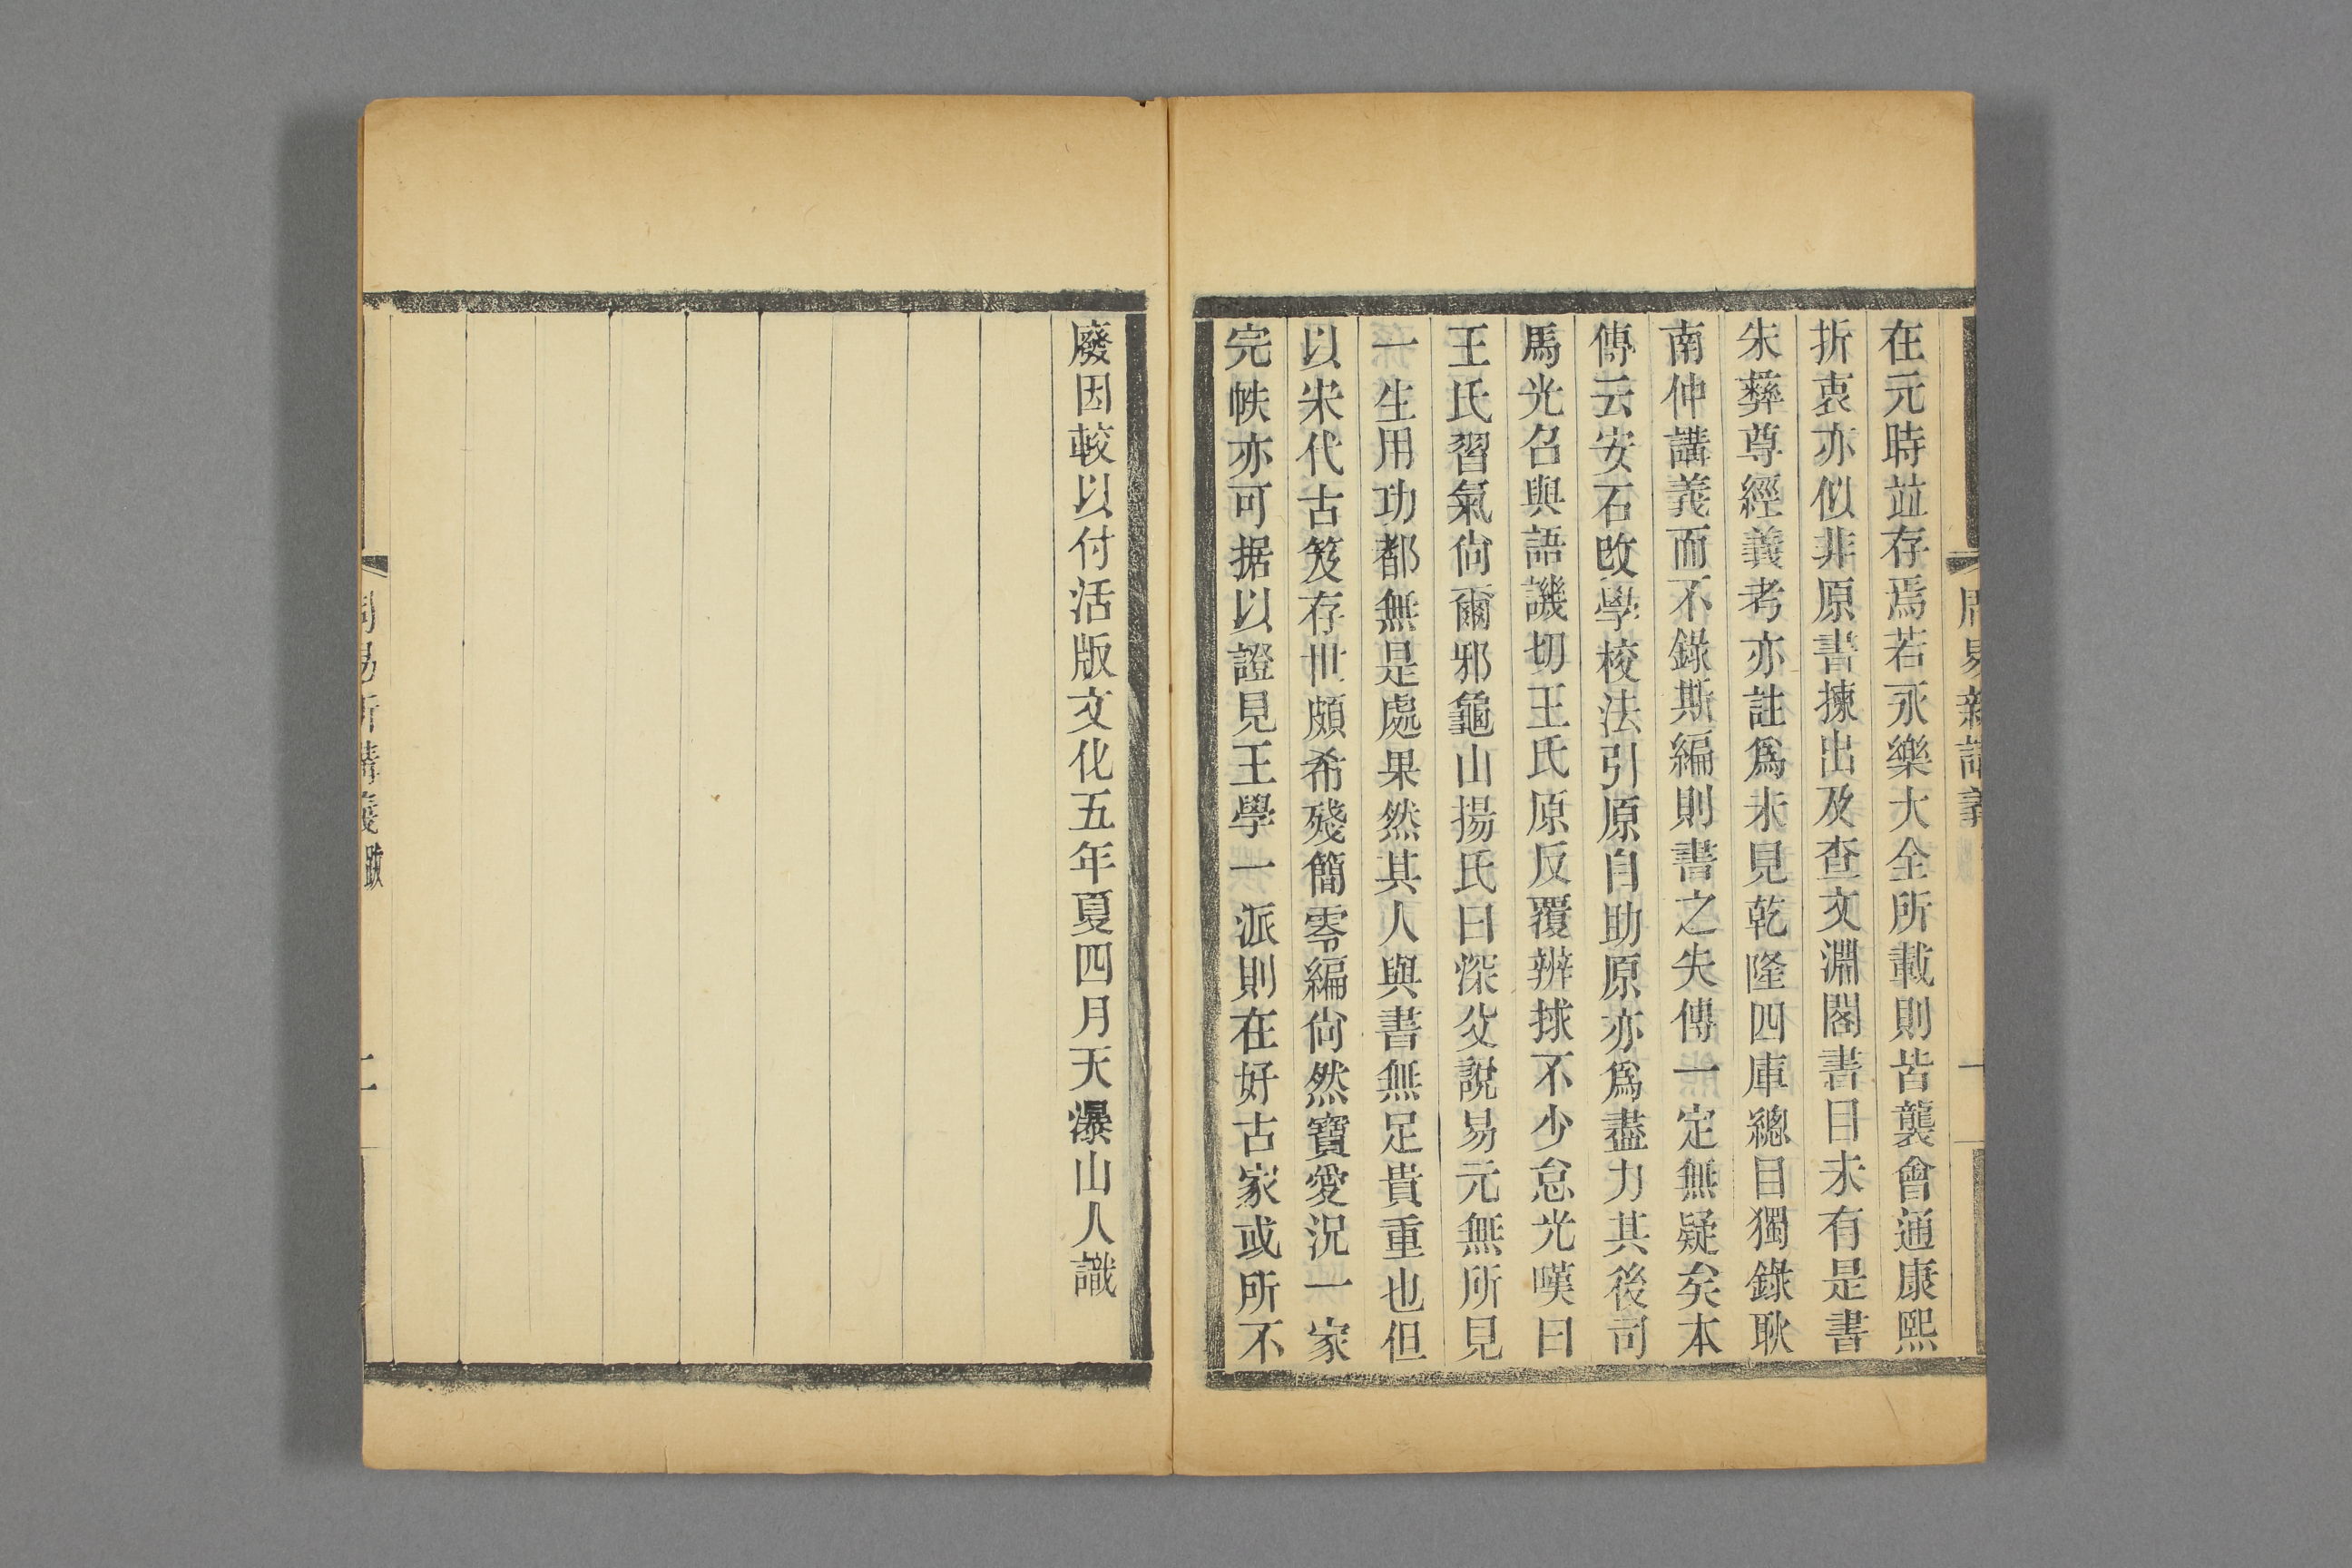 周易新講義
一
在元時竝存焉若永樂大全所載則皆襲會通康熙
折衷亦似非原書揀出及查文淵閣書目未有是書
朱彝尊經義考亦註爲未見乾隆四庫總目獨錄耿
南仲講義而不錄斯編則書之失傳一定無疑矣本
傳云安石改學校法引原自助原亦爲盡力其後司
馬光召與語譏切王氏原反覆辨捄不少怠光嘆曰
王氏習氣尙爾邪龜山揚氏曰深父說易元無所見
一生用功都無是處果然其人與書無足貴重也但
以宋代古笈存世頗希殘簡零編尙然寶愛況一家
完帙亦可据以證見王學一派則在好古家或所不
廢因較以付活版文化五年夏四月天瀑山人識
周易新講義跋